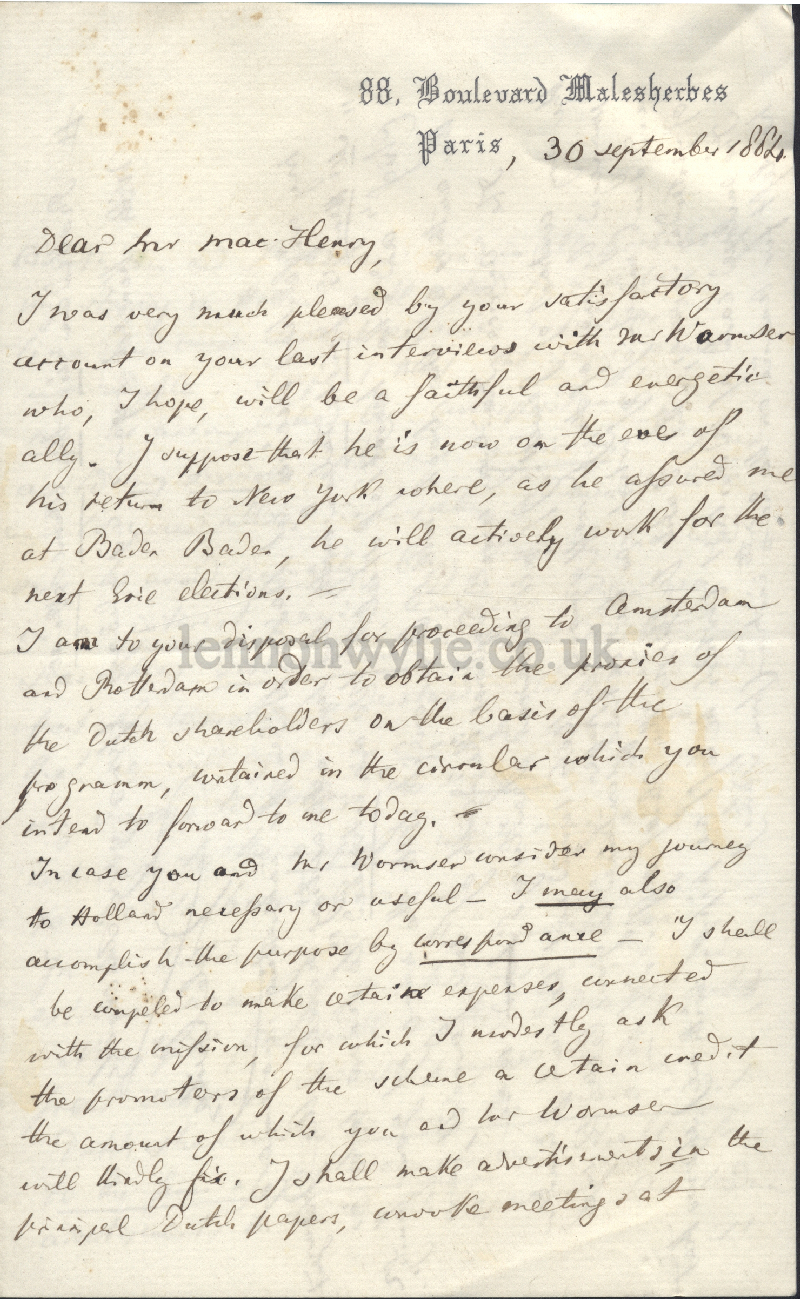 88, Boulevard Malesherbes
Paris, 30 september 1884.
Dear Mr Mac-Henry,
I was very much pleased by your satisfactory
account on your last interviews with Mr Wormser
who, I hope, will be a faithful and energetic
ally. I suppose that he is now on the eve of
his return to New York where, as he assured me
at Baden Baden, he will actively work for the
next Erie elections. —
I am to your disposal for proceeding to Amsterdam
lemonwylie.co.uk
and Rotterdam in order to obtain the proxies of
the Dutch shareholders on the basis of the
programm, contained in the circular which you
intend to forward to me today. —
In case you and Mr Wormser consider my journey
to Holland necessary or useful — I may also
accomplish the purpose by correspondance — I shall
be compeled to make certain expenses, connected
with the mission, for which I modestly ask
the promoters of the scheme a certain credit
the amount of which you and Mr Wormser
will kindly fix. I shall make advertisements in the
principal Dutch papers, convoke meetings at